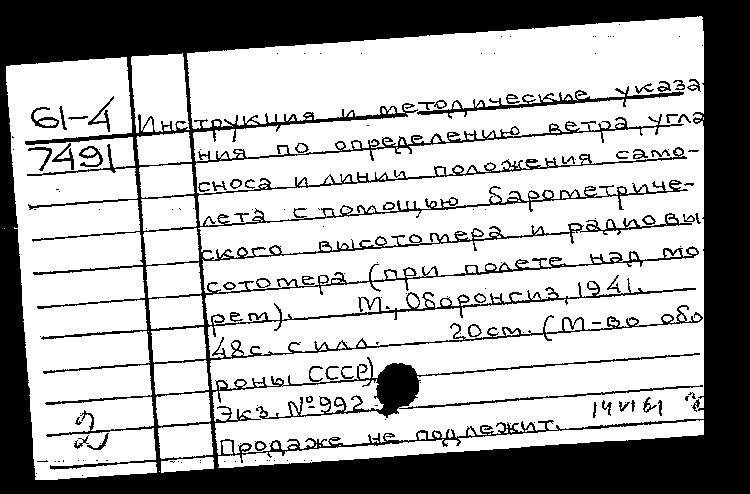 61-4 Инструкция и методические указа-
7491 ния по определению ветра, угла
сноса и линии положения само-
лета с помощью барометриче-
ского высотомера и радиовы-
сотомера (при полете над мо-
рем). М., Оборонгиз, 1941.
48с. с илл. 20см. (М-во обо
роны СССР)
Экз. №992
2 14 VI 61
Продаже не подлежит.